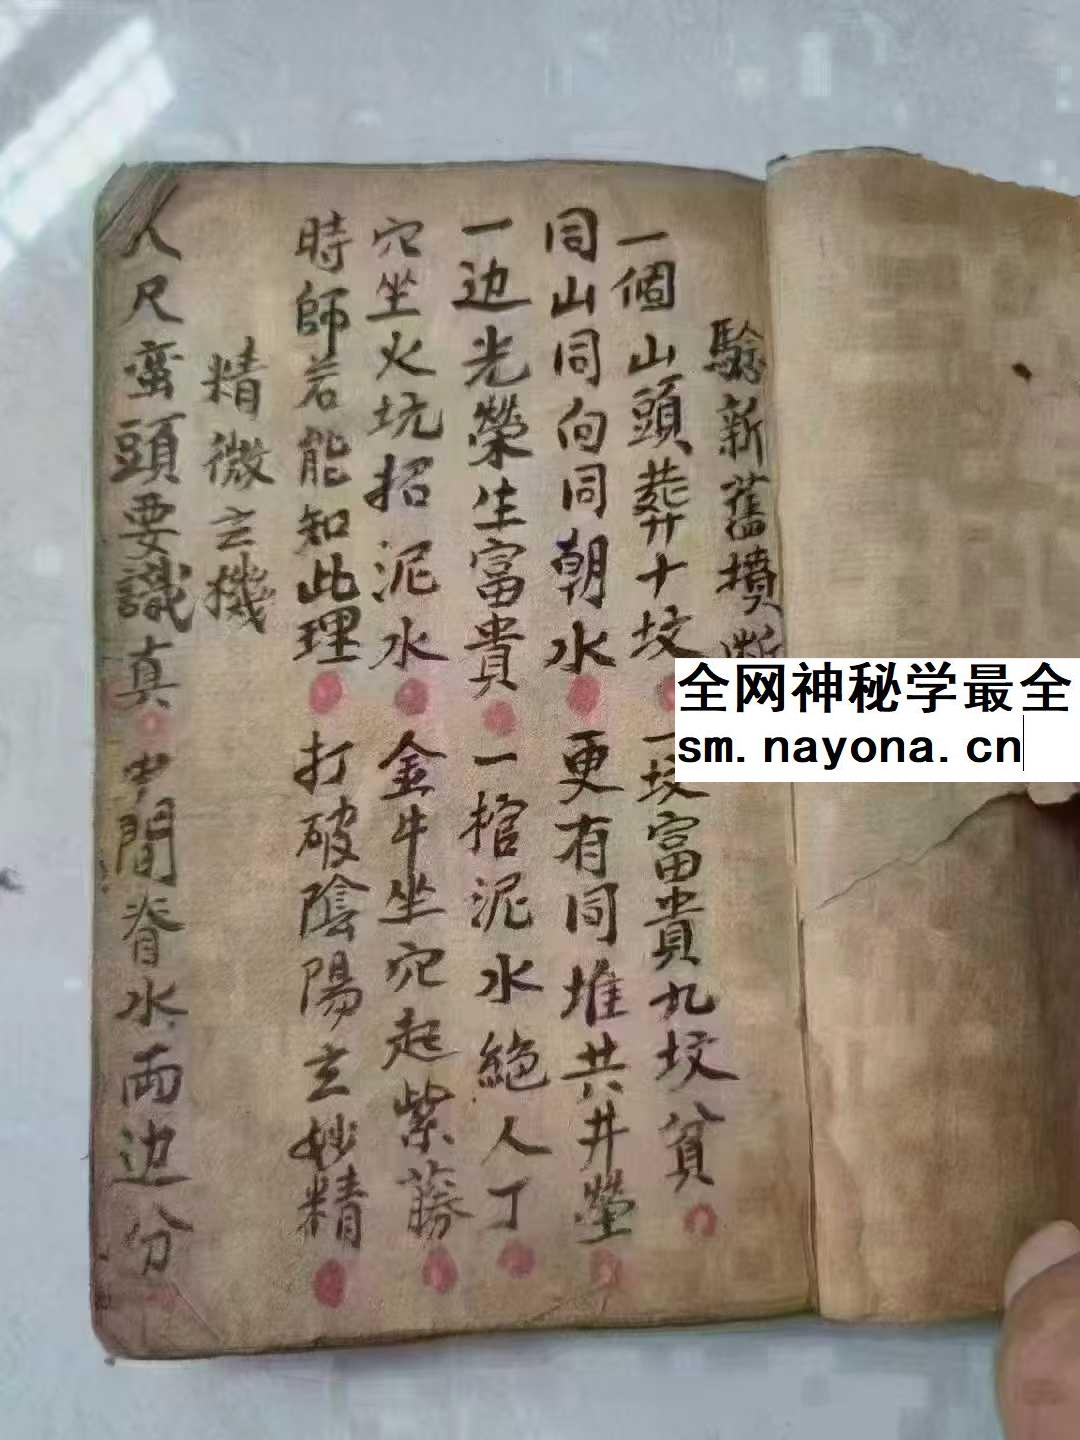 驗新舊墳斷
一個山頭葬十坟 一坟富貴九坟貧
同山同向同朝水 更有同堆共井塋
一边光榮生富貴 一棺泥水絕人丁
穴坐火坑招泥水 金牛坐穴起紫藤
時師若能知此理 打破陰陽玄妙精
精微玄機
人尺蛮頭要識真 中間脊水两边分
全网神秘学最全
sm.nayona.cn